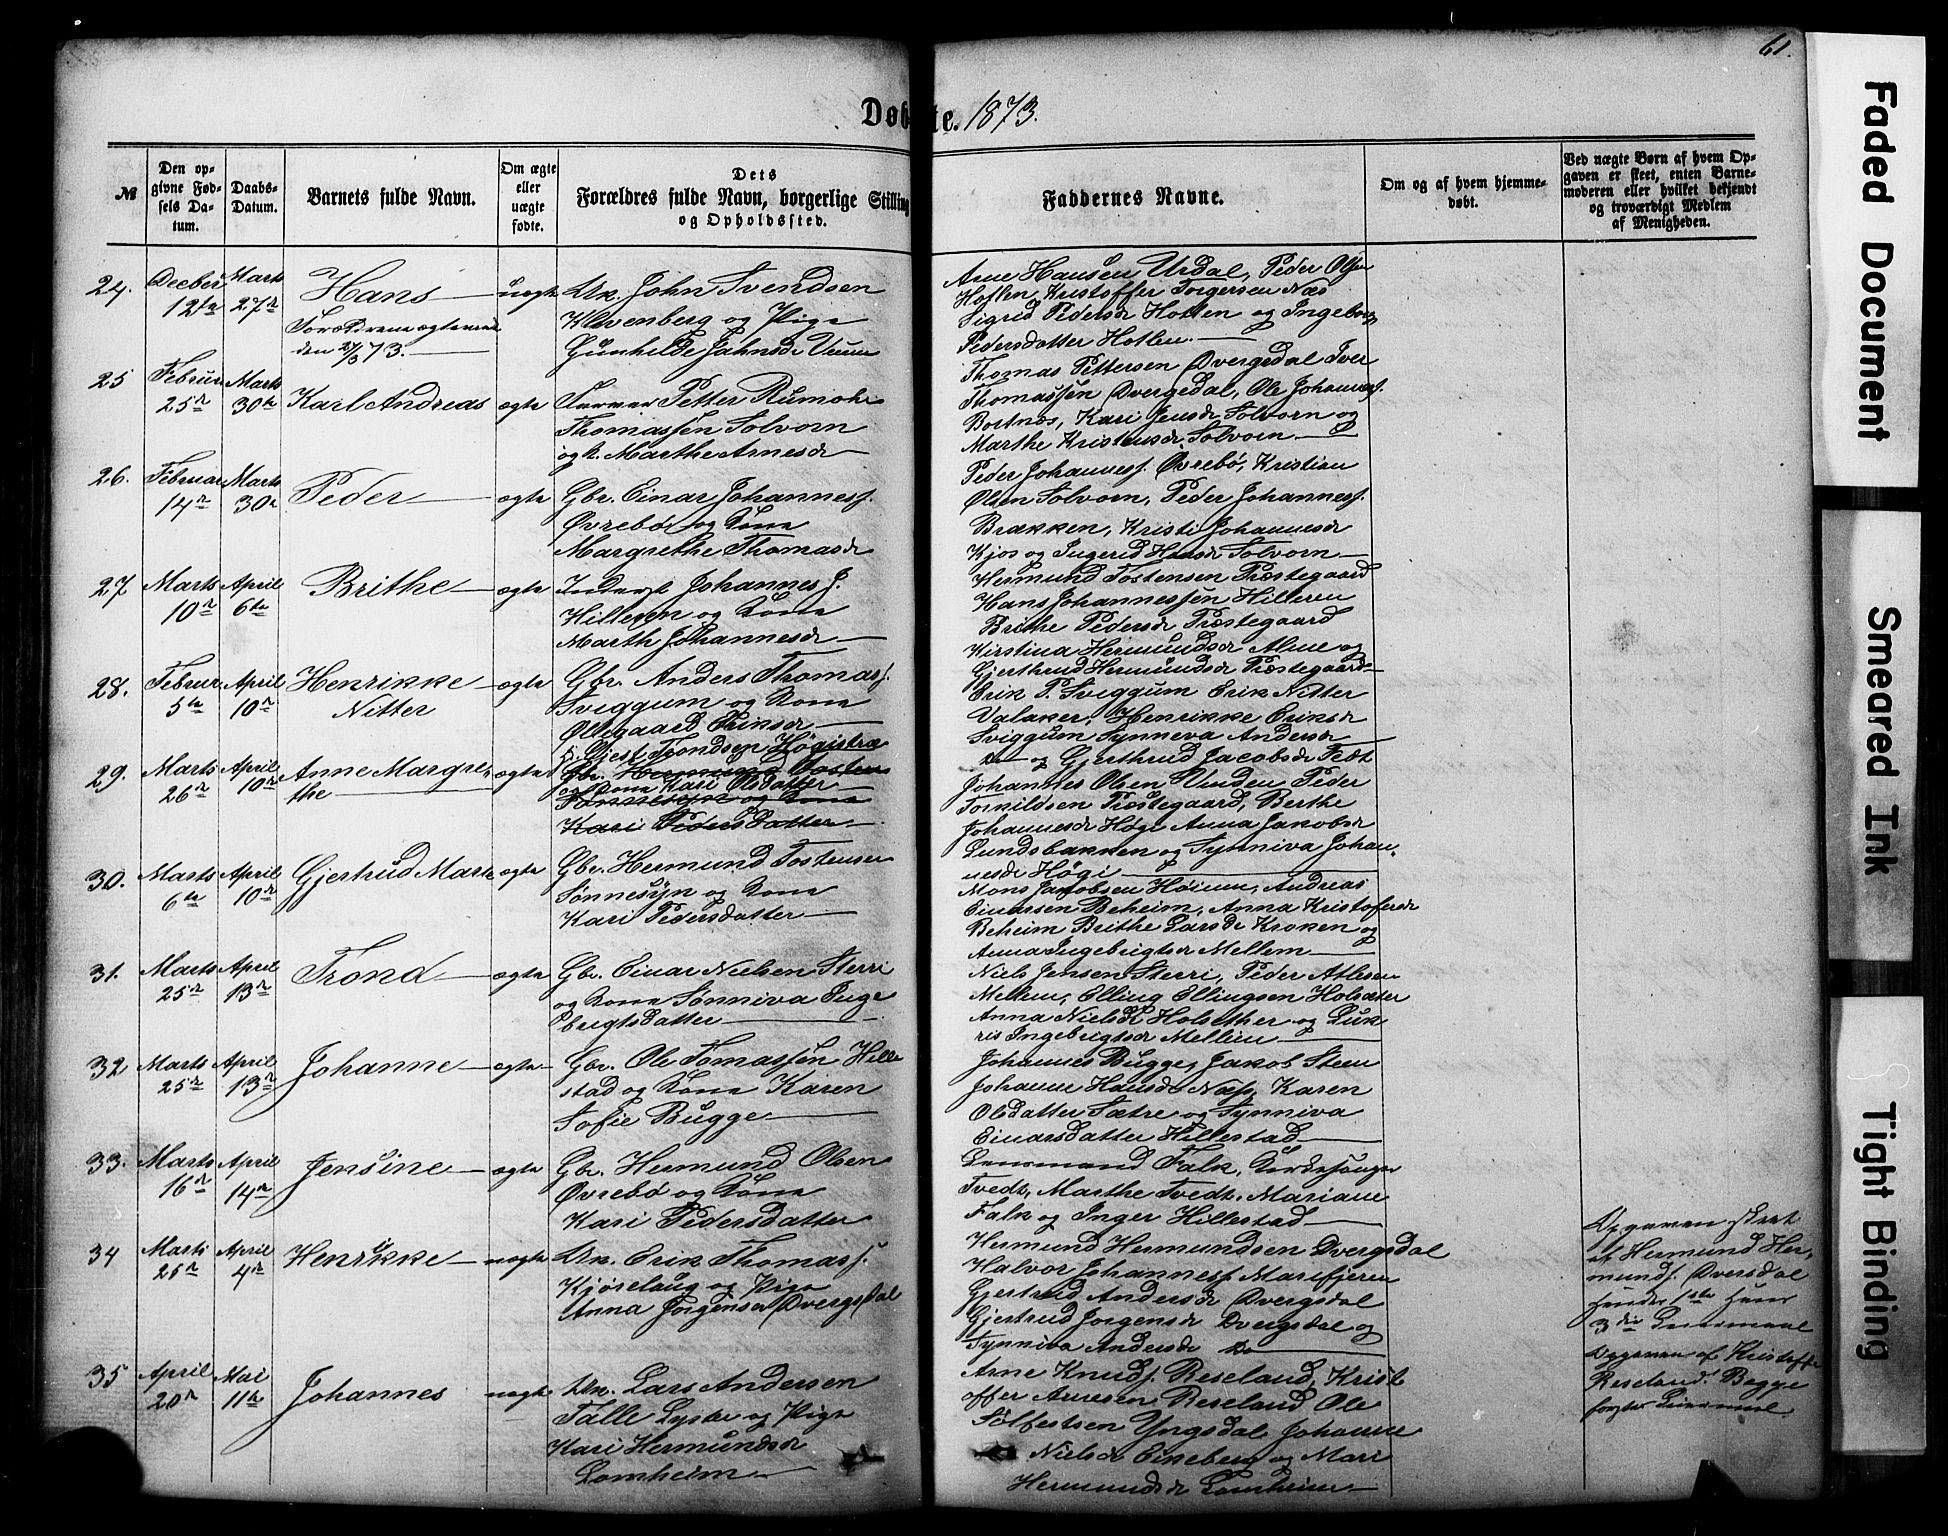 61.
Døbte. 1873.
№
Den op-
givne Fød-
sels Da-
tum.
Daabs-
Datum.
Barnets fulde Navn.
Om ægte
eller
uægte
fødte.
Dets
Forældres fulde Navn, borgerlige Stilling
og Opholdssted.
Faddernes Navne.
Om og af hvem hjemme-
døbt.
Ved uægte Børn af hvem Op-
gaven er skeet, enten Barne-
moderen eller hvilket bekjendt
og troværdigt Medlem
af Menigheden.
24.
Decber
12te
Marts
27de
Hans
Forældrene
den 27/3 73.
uægte
Uk. John Svendsen
Klevenberg og Pige
Gunhilde Jahnsdr
Arne Hansen Urdal, Peder Olsen
Hotlen, Kristoffer Torgersen Næs
Sigrid Pedersdr Hotlen og Ingeborg
Pedersdatter Hotlen
25
Februar
25de
Marts
30te
Karl Andreas
ægte
Petter Rumohr
Thomassen Solvorn
og k. Marthe Arnesdr
Thomas Pettersen Dvergsdal Iver
Thomassen Dvergsdal, Ole Johannesf.
Kari Jensdr Solvorn og
Marthe Kristensdr Solvorn
26.
Februar
14de
Marts
30te
Peder
ægte
Gbr. Einar Johannesf.
Øvrebø og Kone
Margrethe Thomasdr
Peder Johannesf. Øvrebø, Kristian
Olsen Solvorn, Peder Johannesf.
Brakken, Kristi Johannesdr
Kjos og Ingerid Hansdr Solvorn
27
Marts
10de
April
6te
Brithe
ægte
Inderst Johannes J.
Hilleren og Kone
Marth Johannesdr
Hermund Tostensen Præstegaard
Hans Johannessen Hilleren
Brithe Pedersdr Præstegaard
Kirstina Hermundsdr Alme og
Gjerthrud Hermundsdr Præstegaard
28.
Februar
5te
April
10de
Henrikke
Nitter
ægte
Gbr. Anders Thomasf.
Sviggum og Kone
Øllegaard Eriksdr
Erik P. Sviggum Erik Nitter
Valaker, Henrikke Eriksdr
Sviggum Synneva Andersdr
Do og Gjerthrud Jacobsdr Fedt
29.
Marts
26de
April
10de
Anne Margre-
the
ægte
Gjest Trondsen Høgistræ
Gbr. Hermund Tosten
og Kone Kari Olsdatter
Sønnesyn og Kone
Kari Pedersdatter
Johannes Olsen Vinden Peder
Tornildsen Præstegaard, Berthe
Johannesdr Høgi Anna Jakobsdr
Lundsbakken og Synniva Johan-
nesdr Høgi
30.
Marts
6te
April
10de
Gjertrud Marte
ægte
Gbr. Hermund Tostensen
Sønnesyn og Kone
Kari Pedersdatter
Mons Jakobsen Høium, Andreas
Einarsen Beheim, Anna Kristofersdr
Beheim Brithe Larsdr Kroken og
Anna Ingebrigtsdr Mellem
31.
Marts
25de
April
13de
Trond
ægte
Gbr. Einar Nielsen Sterri
og Kone Sønniva Inge
brigtsdatter
Niels Jensen Sterri, Peder Atlesen
Mellem, Elling Ellingsen Holsæter
Anna Nielsdr Holsether og Guk
ris Ingebrigtsdr Mellem
32
Marts
25de
April
13de
Johanne
ægte
Gbr. Ole Tomassen Hille
stad og Kone Karen
Sofie Bugge
Johannes Bugge, Jakob Steen
Johanne Hansdr Næss, Karen
Olsdatter Sætre og Synniva
Einarsdatter Hillestad
33.
Marts
16de
April
14de
Jensine
ægte
Gbr. Hermund Olsen
Øvrebø og Kone
Kari Pedersdatter
Lensmand Falk, Kirkesanger
Tvedt, Marthe Tvedt, Mariane
Falk og Inger Hillestad
34
Marts
25de
April
4de
Henrikke
uægte
Uk. Erik Thomasf.
Kjørelaug og Pige
Anna Jørgensdr Dvergsdal
Hermund Hermundsen Dvergsdal
Halvor Johannesf. Marifjeren
Gjertrud Andersdr Dvergsdal
Gjertrud Jørgensdr Dvergsdal og
Synniva Andersdr Do
Opgaven skeet
af Hermund Her-
mundf. Dversdal
hendes 1ste hans
3die Leiermaal
35
April
20de
Mai
11te
Johannes
uægte
Uk. Lars Andersen
Talle Lyster og Pige
Kari Hermundsdr
Lomheim
Arne Knudf. Reseland, Krist
offer Arnesen Reseland Ole
Sølfestsen Yngsdal Johanne
Nielsdr Eineberg og Mari
Hermundsdr Lomheim
Opgaven af Kristoffer
Reseland. Begge
første Leiermaal.
Faded Document
Smeared Ink
Tight Binding